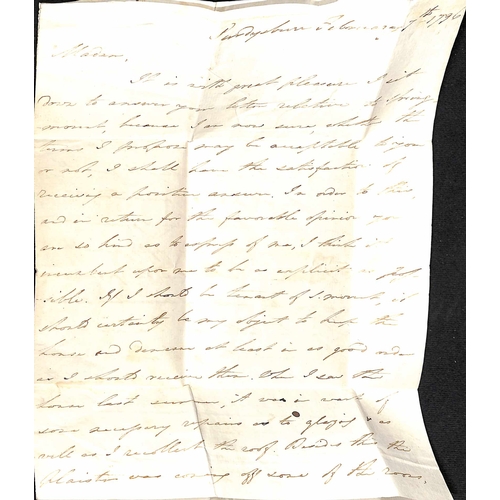 February 7th 1796
Madam,
It is with great pleasure I sit
down to answer your letter relative to Spring
mount, because I am now sure, whether the
terms I propose may be acceptable to you
or not, I shall have the satisfaction of
receiving a positive answer. In order to this,
and in return for the favorable opinion you
are so kind as to express of me, I think it
incumbent upon me to be as explicit as pos
sible. If I should be tenant of S:mount, it
should certainly be my object to keep the
house and demesne at least in as good order
as I should receive them. When I saw the
house last summer, it was in want of
some necessary repairs as to glazing as
well as I recollect the roof. Besides this the
Plaister was coming off some of the rooms,